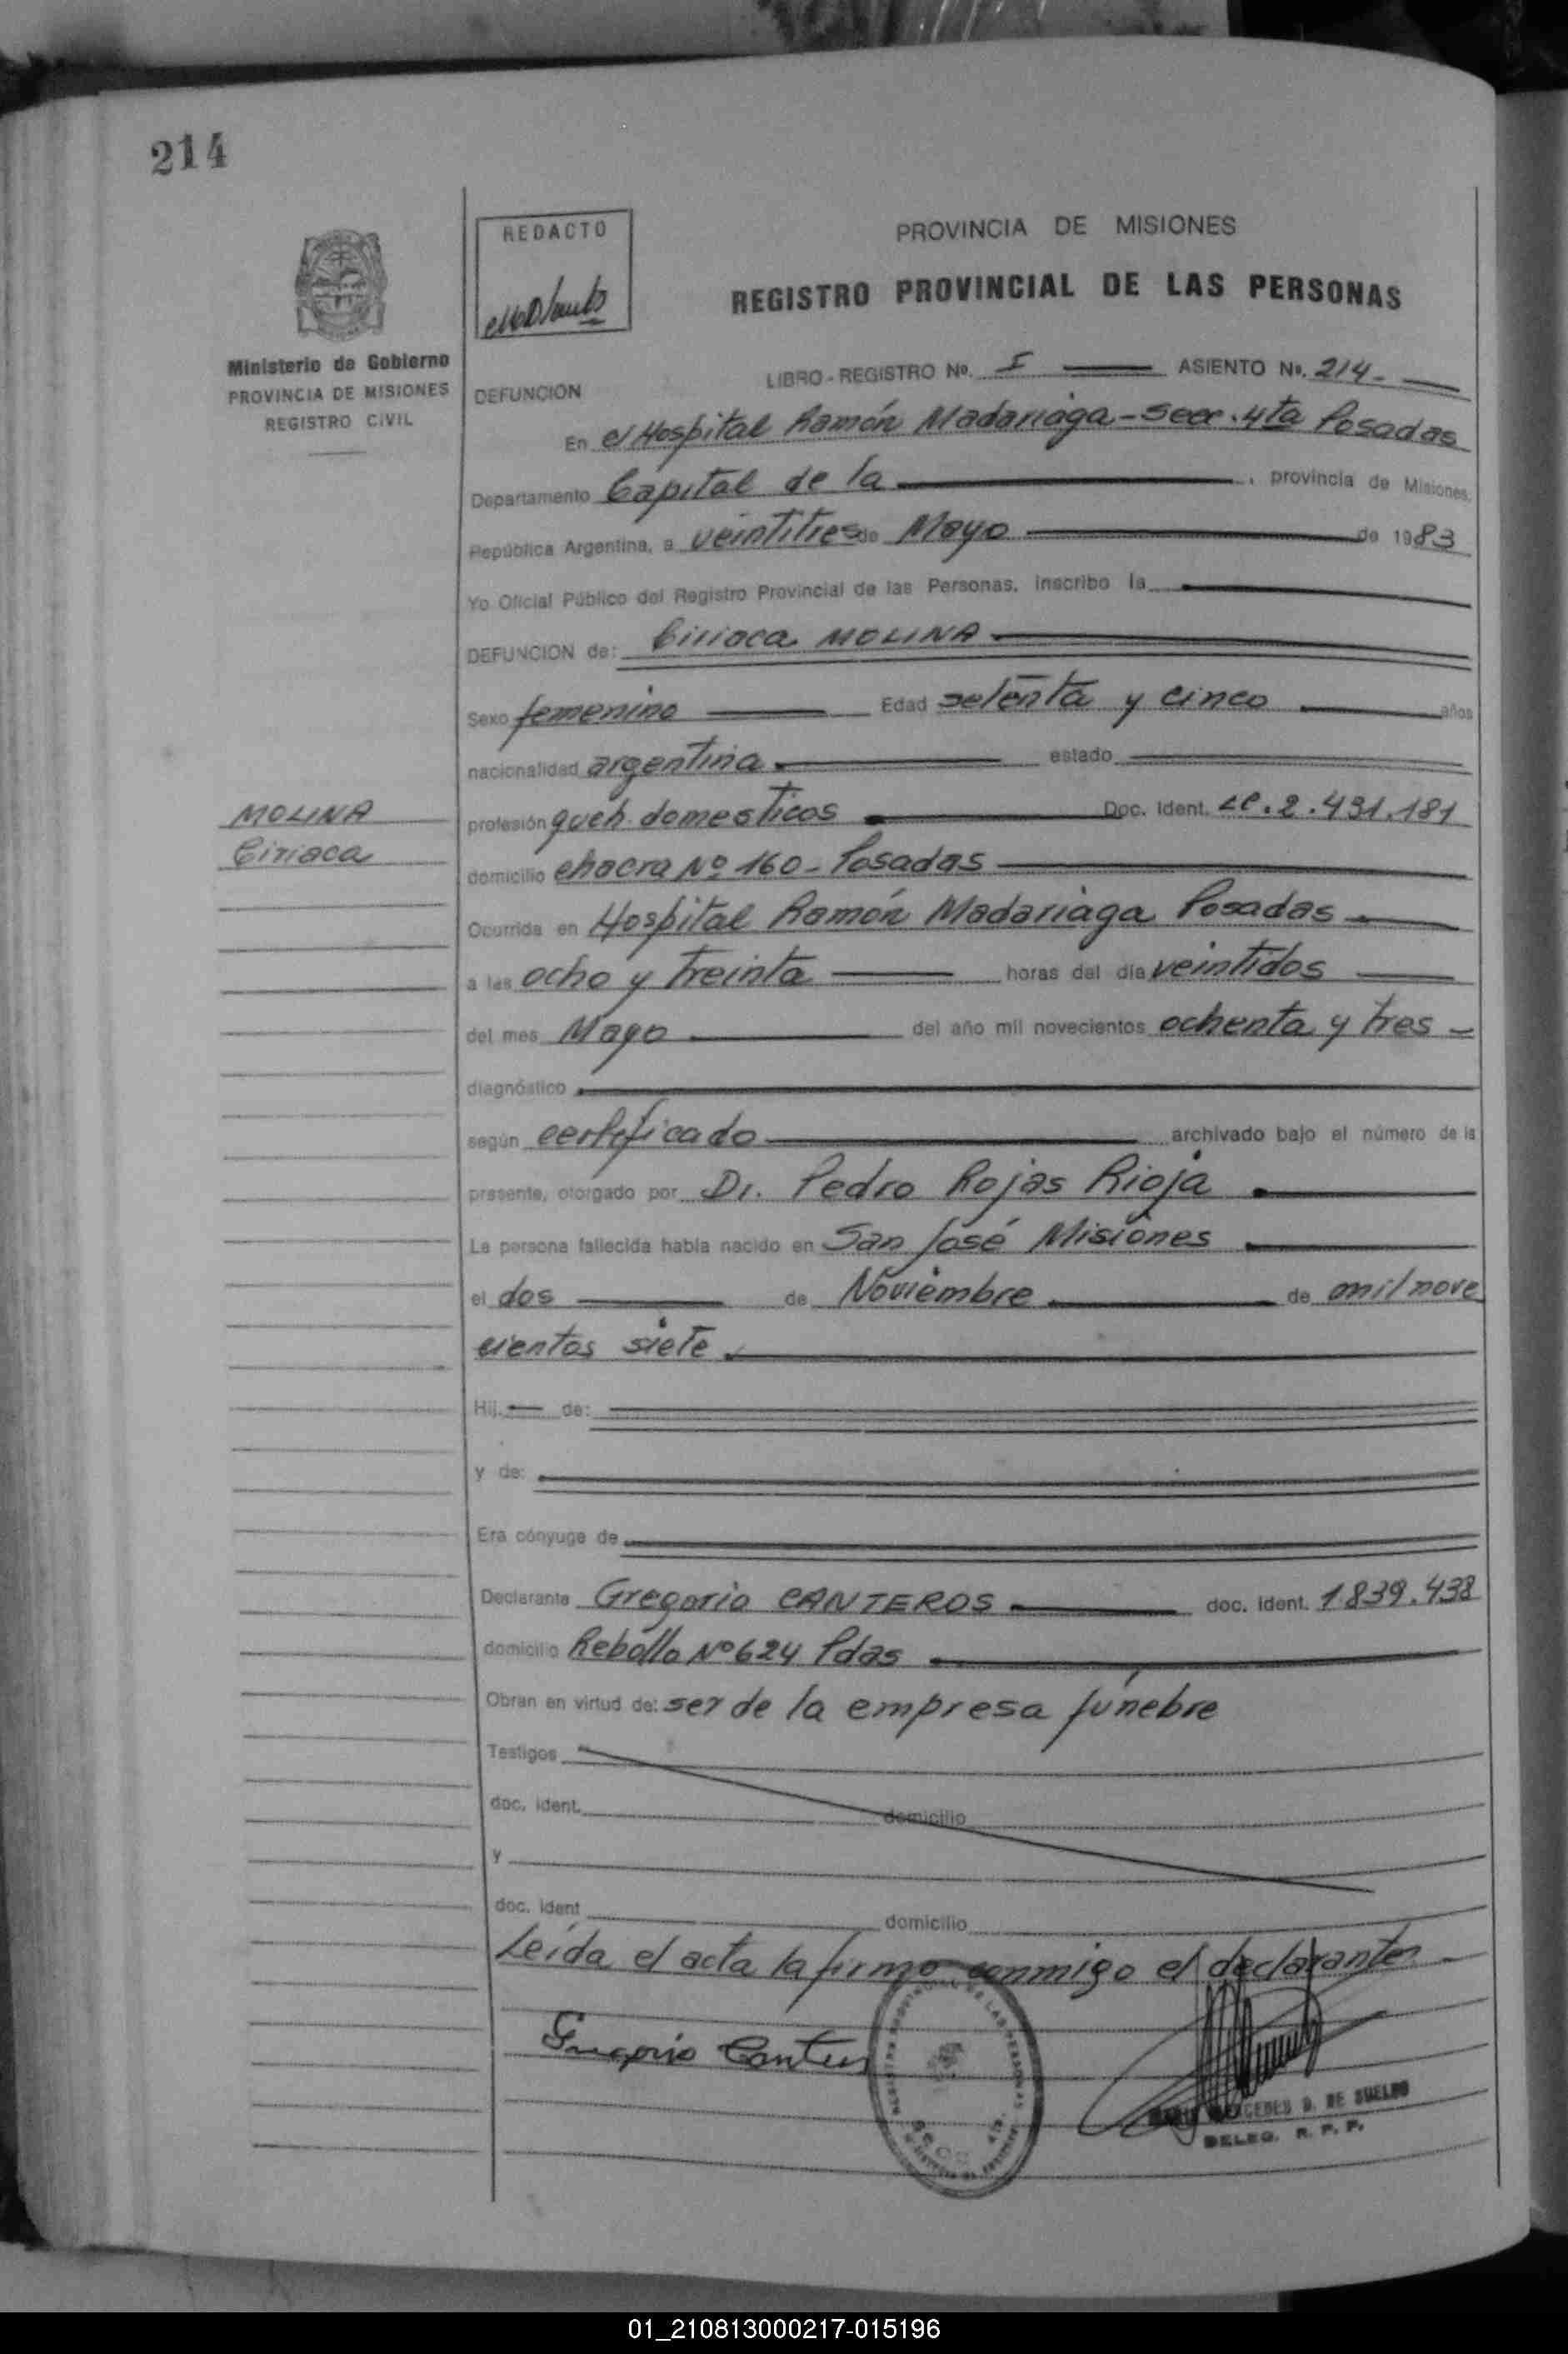 214
REDACTO
PROVINCIA DE MISIONES
REGISTRO PROVINCIAL DE LAS PERSONAS
Ministerio de Gobierno
PROVINCIA DE MISIONES
REGISTRO CIVIL
LIBRO-REGISTRO No. I ASIENTO No. 214.
DEFUNCION
En el Hospital Ramón Madariaga - Secc. 4ta Posadas
Departamento Capital de la , provincia de Misiones,
República Argentina, a veintitres de Mayo de 1983
Yo Oficial Público del Registro Provincial de las Personas, inscribo la
DEFUNCION de: Ciriaca MOLINA
Sexo femenino Edad setenta y cinco años
nacionalidad argentina estado
MOLINA
Ciriaca
profesión queh. domesticos Doc. Ident. LC. 2.431.181
domicilio chacra Nº 160 - Posadas
Ocurrida en Hospital Ramón Madariaga Posadas
a las ocho y treinta horas del día veintidos
del mes Mayo del año mil novecientos ochenta y tres
diagnóstico
según certificado archivado bajo el número de la
presente, otorgado por Dr. Pedro Rojas Rioja
La persona fallecida había nacido en San José Misiones
el dos de Noviembre de mil nove
cientos siete
Hij de:
y de:
Era cónyuge de
Declarante Gregorio CANTEROS doc. ident. 1.839.438
domicilio Rebollo Nº 624 Pdas
Obran en virtud de: ser de la empresa fúnebre
Testigos
doc. ident. domicilio
y
doc. ident domicilio
Leída el acta la firma conmigo el declarante
Gregorio Canteros
MERCEDES D. DE SUELDO
DELEG. R. P. P.
01_210813000217-015196